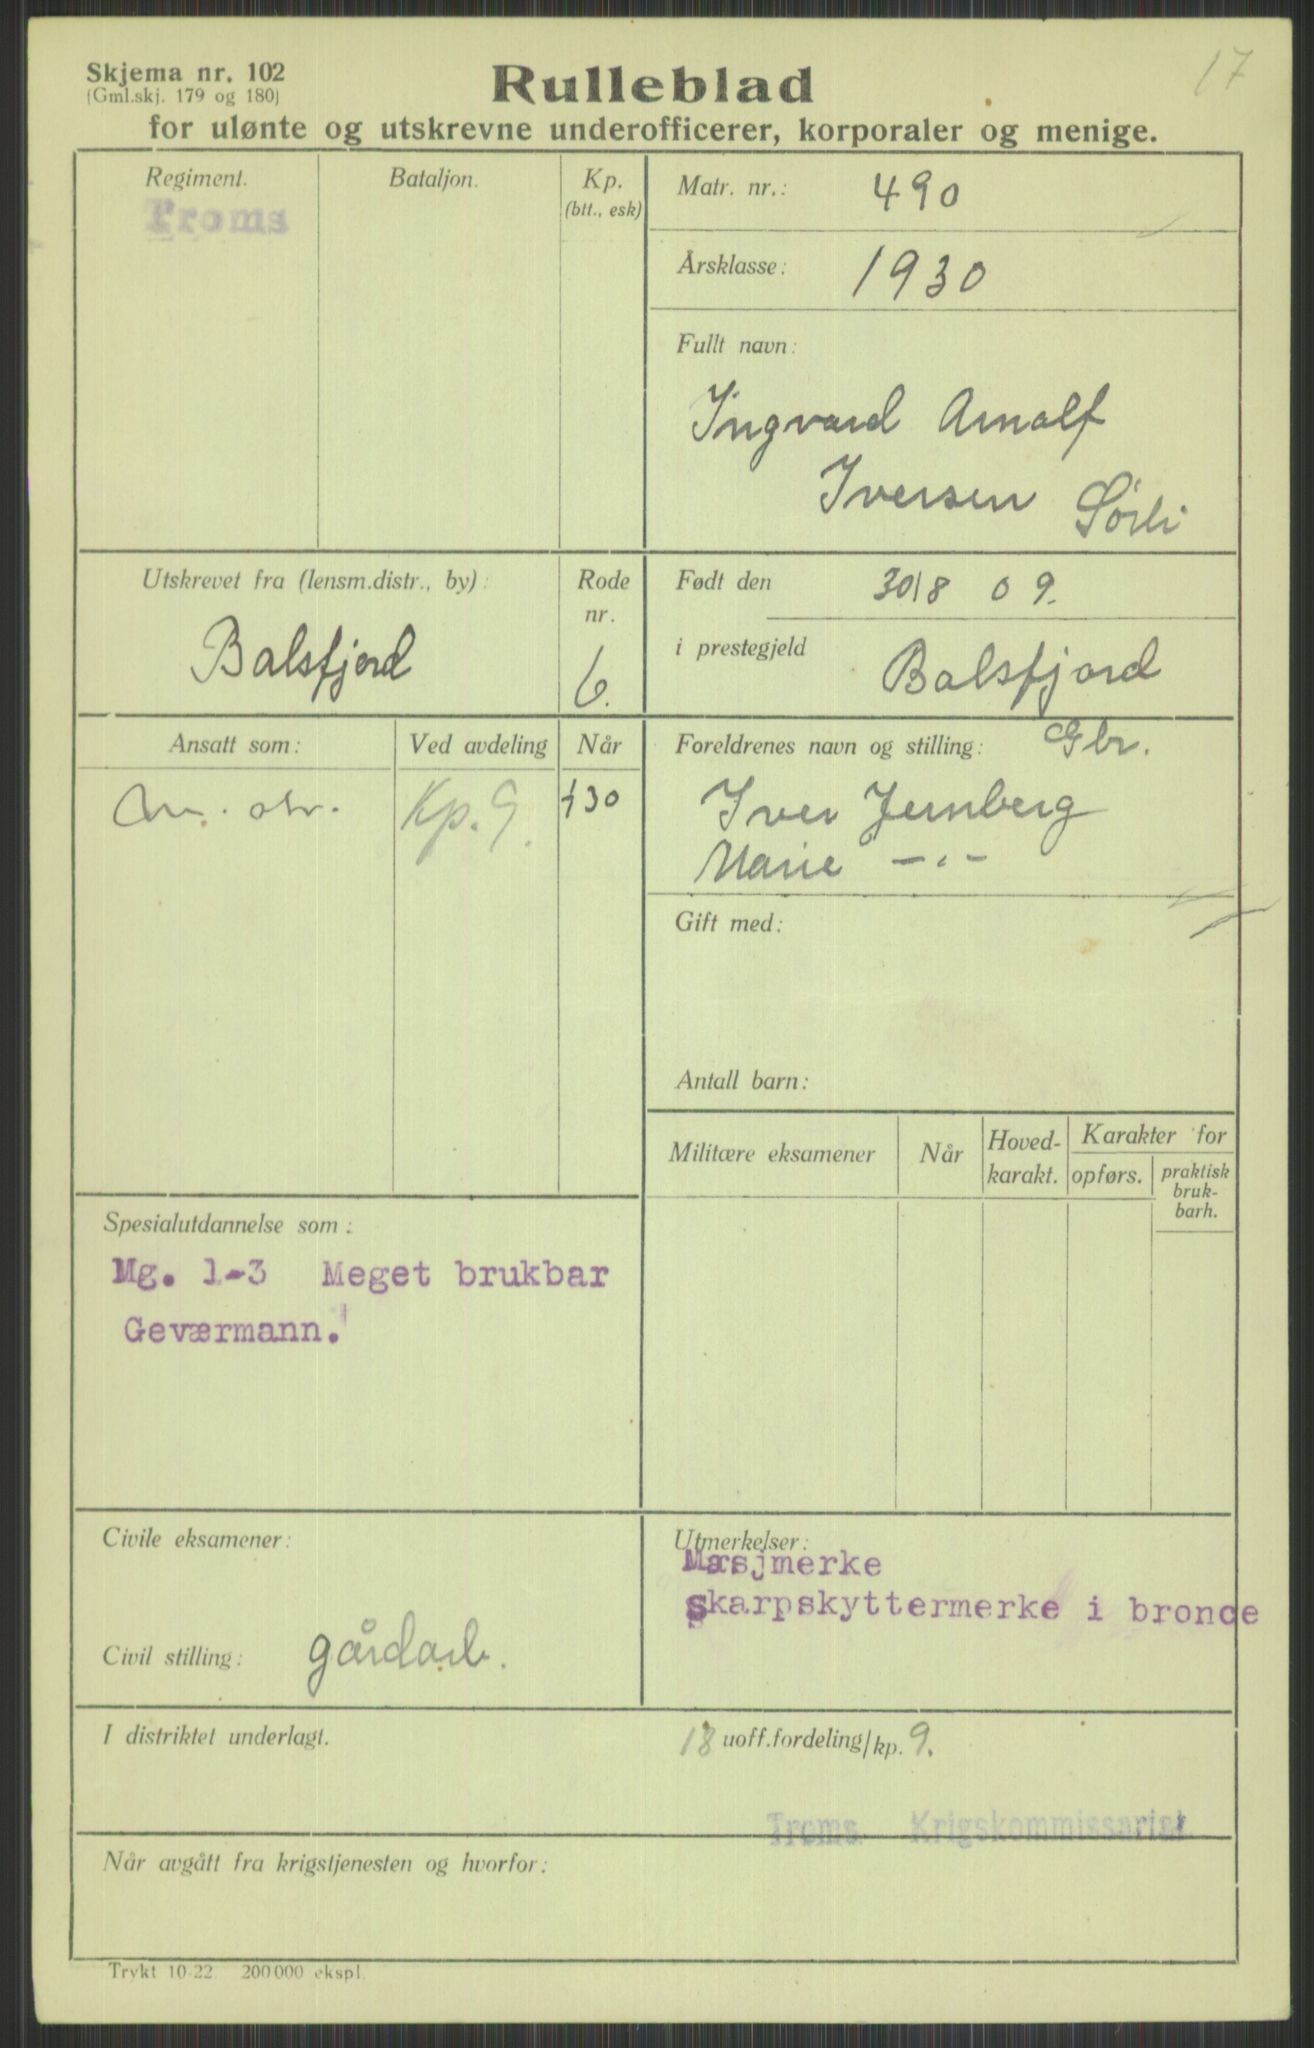 17
Skjema nr. 102
(Gml.skj. 179 og 180)
Rulleblad
for ulønte og utskrevne underofficerer, korporaler og menige.
Regiment. Bataljon. Kp. (btt., esk)
Troms
Matr. nr.: 490
Årsklasse: 1930
Fullt navn:
Ingvard Arnolf
Iversen Sørli
Utskrevet fra (lensm.distr., by): Rode nr.
Balsfjord 6.
Født den 30/8 09.
i prestegjeld Balsfjord
Ansatt som: Ved avdeling Når
Kp. 9. 30
Foreldrenes navn og stilling: Gbr.
Iver Jernberg
Marie -"-
Gift med:
Antall barn:
Militære eksamener Når Hoved-karakt. Karakter for
opførs. praktisk bruk-barh.
Spesialutdannelse som:
Mg. 1-3 Meget brukbar
Geværmann.
Civile eksamener:
Civil stilling: gårdarb.
Utmerkelser:
Marsjmerke
Skarpskyttermerke i bronce
I distriktet underlagt.
18 uoff.fordeling/kp. 9.
Troms Krigskommissariat
Når avgått fra krigstjenesten og hvorfor:
Trykt 10-22. 200000 ekspl.